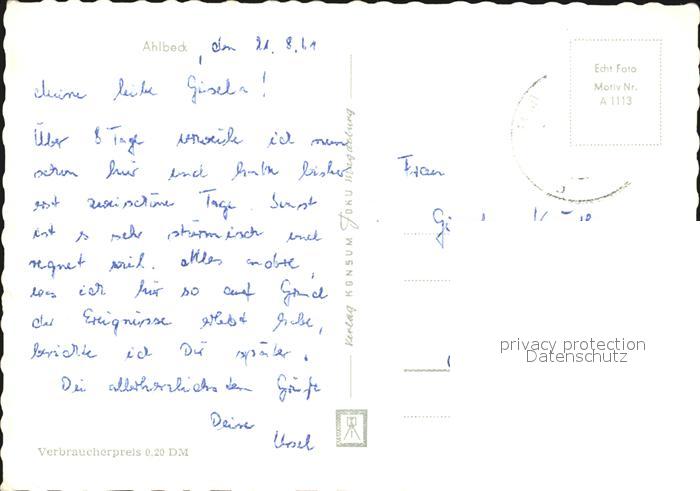 Ahlbeck, den 21. 8. 61
Meine liebe Gisela!
Über 8 Tage verweile ich nun
schon hier und hatte bisher
erst zwei schöne Tage. Sonst
ist es sehr stürmisch und
regnet viel. Alles andere,
was ich hier so auf Grund
der Ereignisse erlebt habe,
berichte ich Dir später.
Die allerherzlichsten Grüße
Deine
Ursel
Verbraucherpreis 0,20 DM
Verlag KONSUM FOKU Magdeburg
Echt Foto
Motiv Nr.
A 1113
Frau
privacy protection
Datenschutz